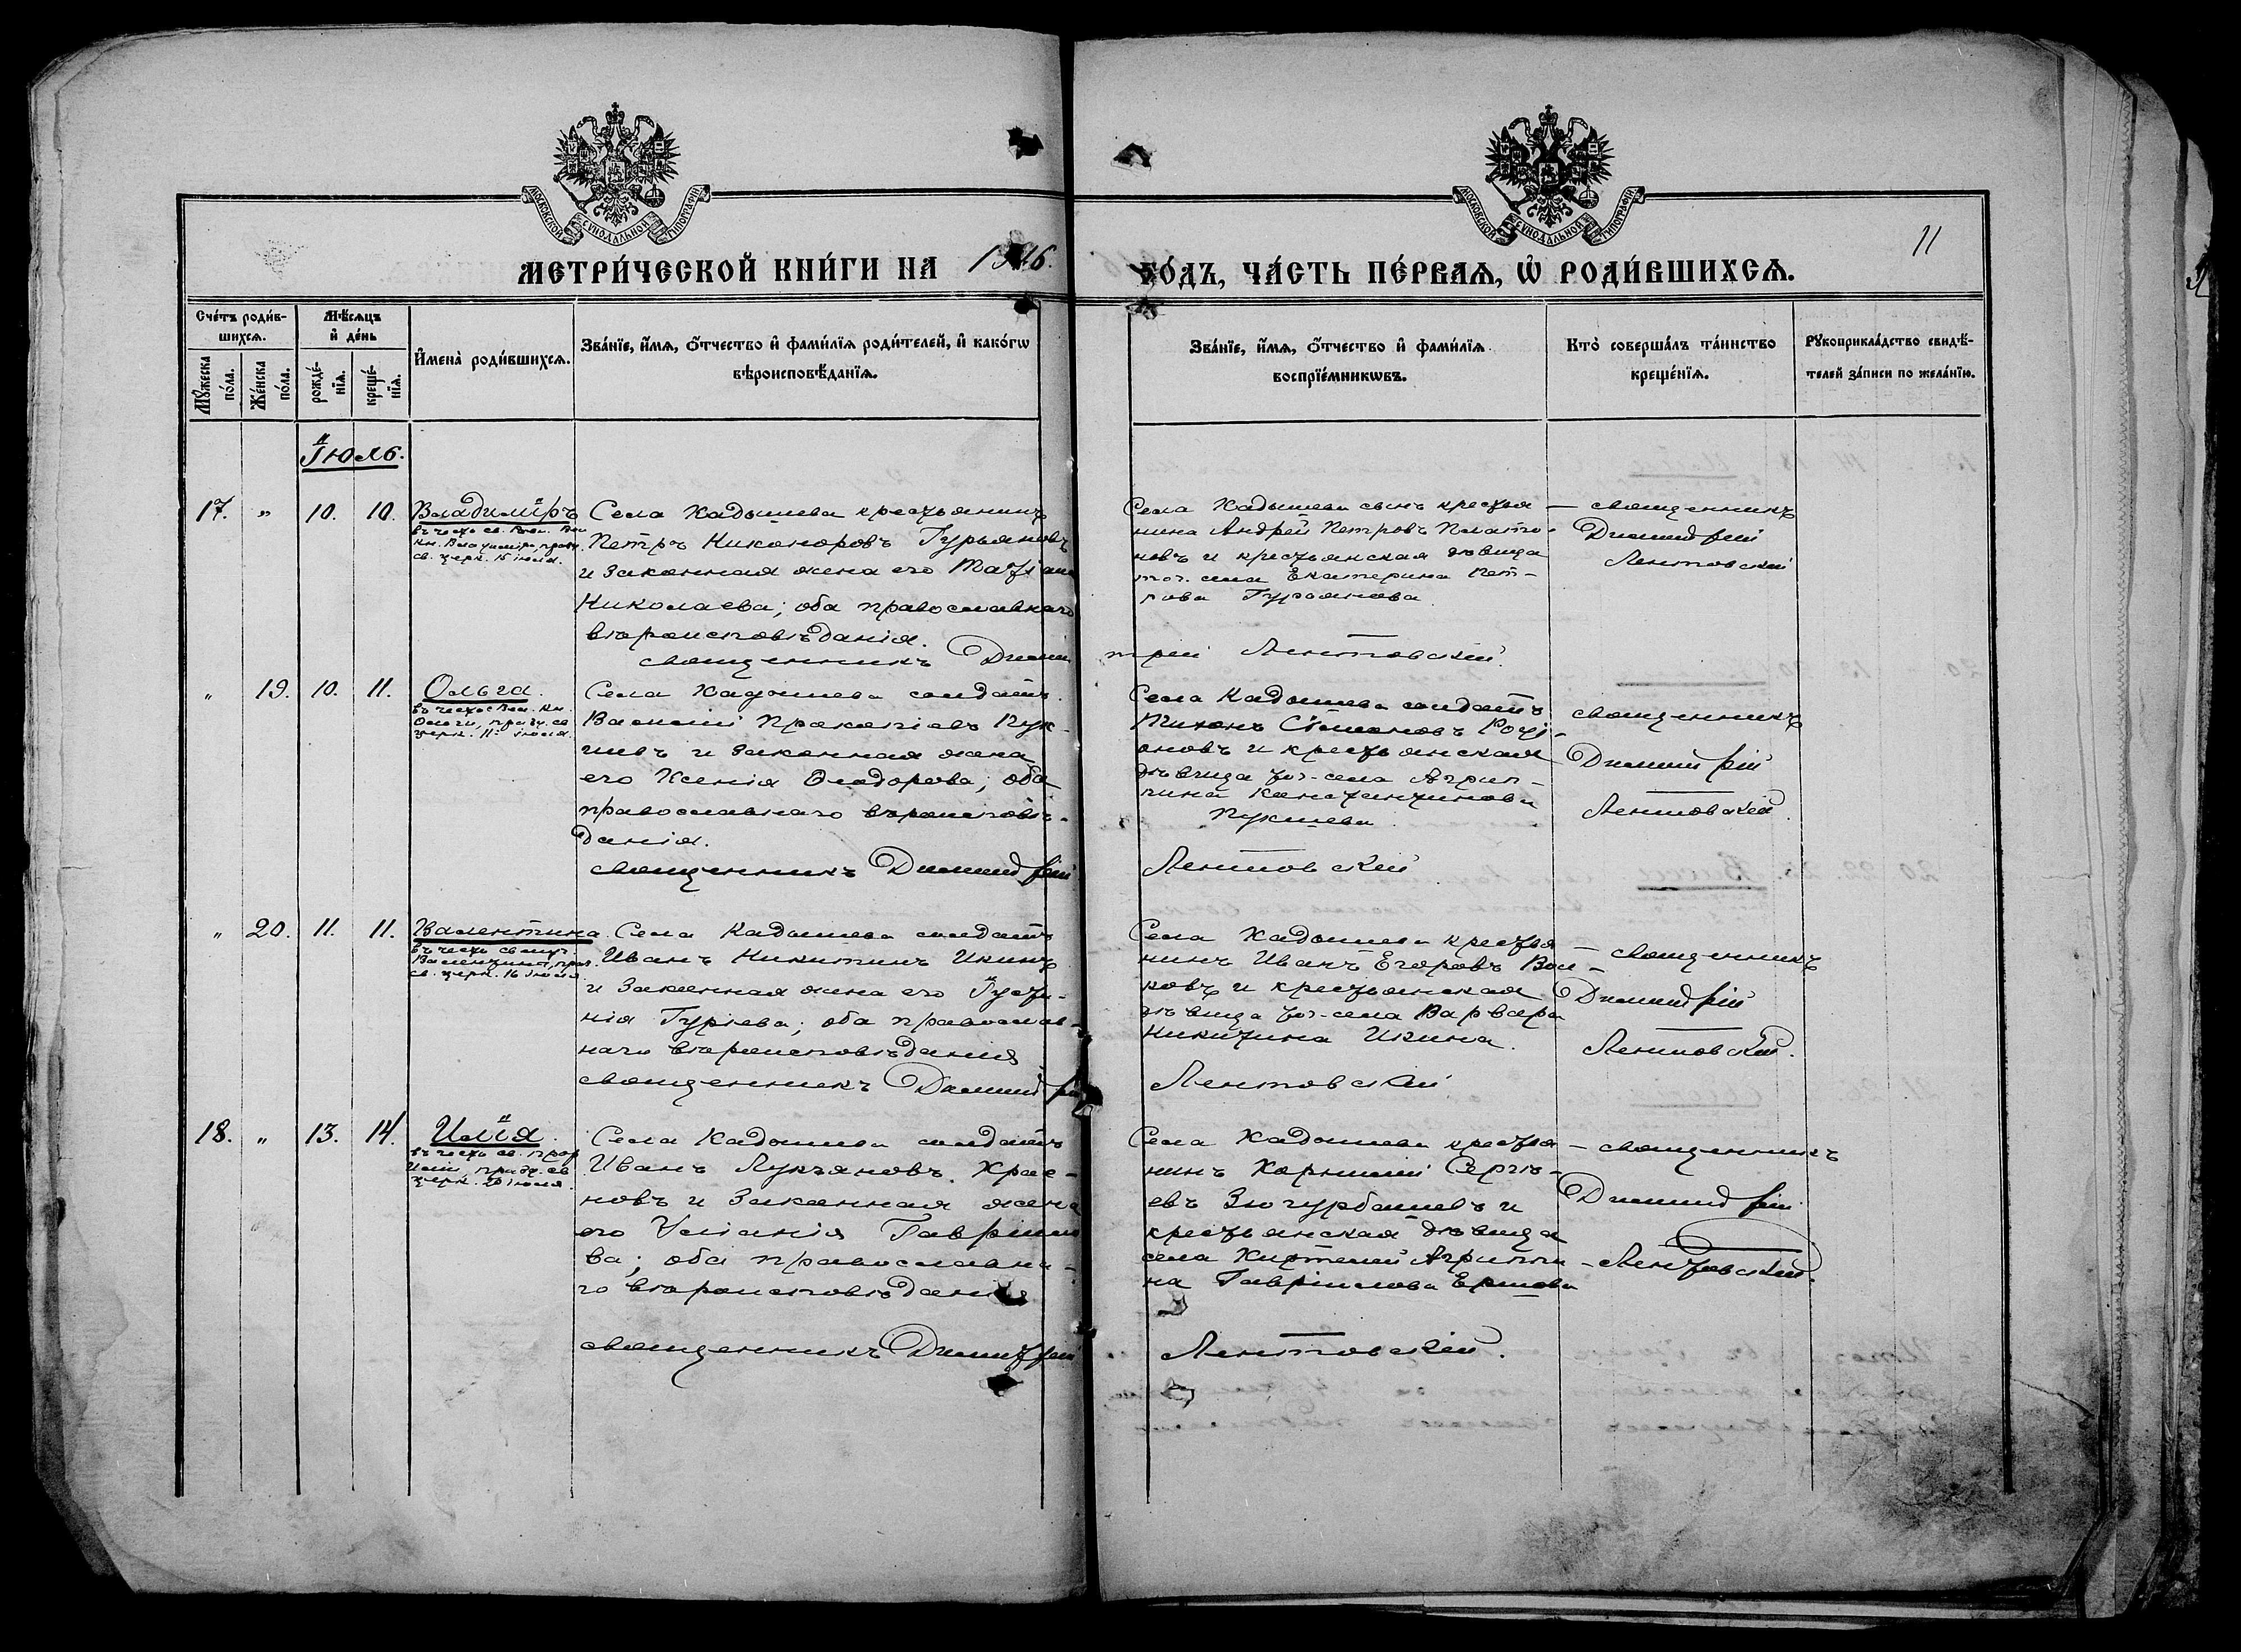 МОСКОВСКОЙ СѴНОДАЛЬНОЙ ТИПОГРАФІИ
МОСКОВСКОЙ СѴНОДАЛЬНОЙ ТИПОГРАФІИ
11
МЕТРИ́ЧЕСКОЙ КНИ́ГИ НА 1916.
ГО́ДЪ, ЧА́СТЬ ПЕ́РВАѦ, Ѡ҆ РОДИ́ВШИХСѦ.
Сче́тъ роди́в-
шихсѧ.
Мꙋ́жеска
по́ла.
Же́нска
по́ла.
Мѣ́сѧцъ
и҆ де́нь
рожде́-
нїѧ.
креще́-
нїѧ.
И҆мена̀ роди́вшихсѧ.
Зва́нїе, и҆́мѧ, ѻ҆́тчество и҆ фами́лїѧ роди́телей, и҆ како́гѡ
вѣроисповѣ́данїѧ.
Зва́нїе, и҆́мѧ, ѻ҆́тчество и҆ фами́лїѧ
воспрїе́мникѡвъ.
Кто̀ соверша́лъ та́инство
креще́нїѧ.
Рꙋкоприкла́дство свидѣ́-
телей за́писи по жела́нїю.
Іюль.
17. „ 10. 10. Владиміръ
въ честь св. Равн. Вел.
кн. Владиміра, празд.
св. церк. 15 іюля.
Села Кадышева крестьянинъ
Петръ Никаноровъ Гурьяновъ
и законная жена его
Николаева; оба православнаго
вѣроисповѣданія.
священникъ Димит
Села Кадышева сынъ крестья-
нина Андрей Петровъ Плато-
новъ и крестьянская дѣвица
тог. села Екатерина Пет-
рова Гурьянова
трій Лентовскій.
священникъ
Димитрій
Лентовскій
„ 19. 10. 11. Ольга.
въ честь Вел. Кн.
Ольги, празд. св.
церк. 11 іюля.
Села Кадышева солдатъ
Василій Прокопіевъ Пук-
шевъ и законная жена
его Ксенія Ѳеодорова; оба
православнаго вѣроисповѣ-
данія.
священникъ Димитрій
Села Кадышева солдатъ
Тихонъ
оновъ и крестьянская
дѣвица тог. села Агрип-
пина Константинова
Пукшева
Лентовскій
священникъ
Димитрій
Лентовскій.
„ 20. 11. 11. Валентина.
въ честь св. муч.
Валентины, празд.
св. церк. 16 іюля.
Села Кадышева солдатъ
Иванъ Никитинъ Икинъ
и законная жена его Іусти-
нія Гуріева; оба православ-
наго вѣроисповѣданія
священникъ Димитрій
Села Кадышева крестья-
нинъ Иванъ Егоровъ Вол-
ковъ и крестьянская
дѣвица тог. села Варвара
Никитина Икина.
Лентовскій
священникъ
Димитрій
Лентовскій.
18. „ 13. 14. Илія.
въ честь св. прор.
Иліи, празд. св.
церк. 20 іюля.
Села Кадышева солдатъ
Иванъ Лукьяновъ Крас-
новъ и законная жена
его Уліанія Гаврило
ва; оба православна-
го вѣроисповѣданія
священникъ Димитрій
Села Кадышева крестья-
нинъ Корнилій Сергѣ-
евъ и
крестьянская дѣвица
села Агриппи-
на Гавріилова Ершова
Лентовскій.
священникъ
Димитрій
Лентовскій.